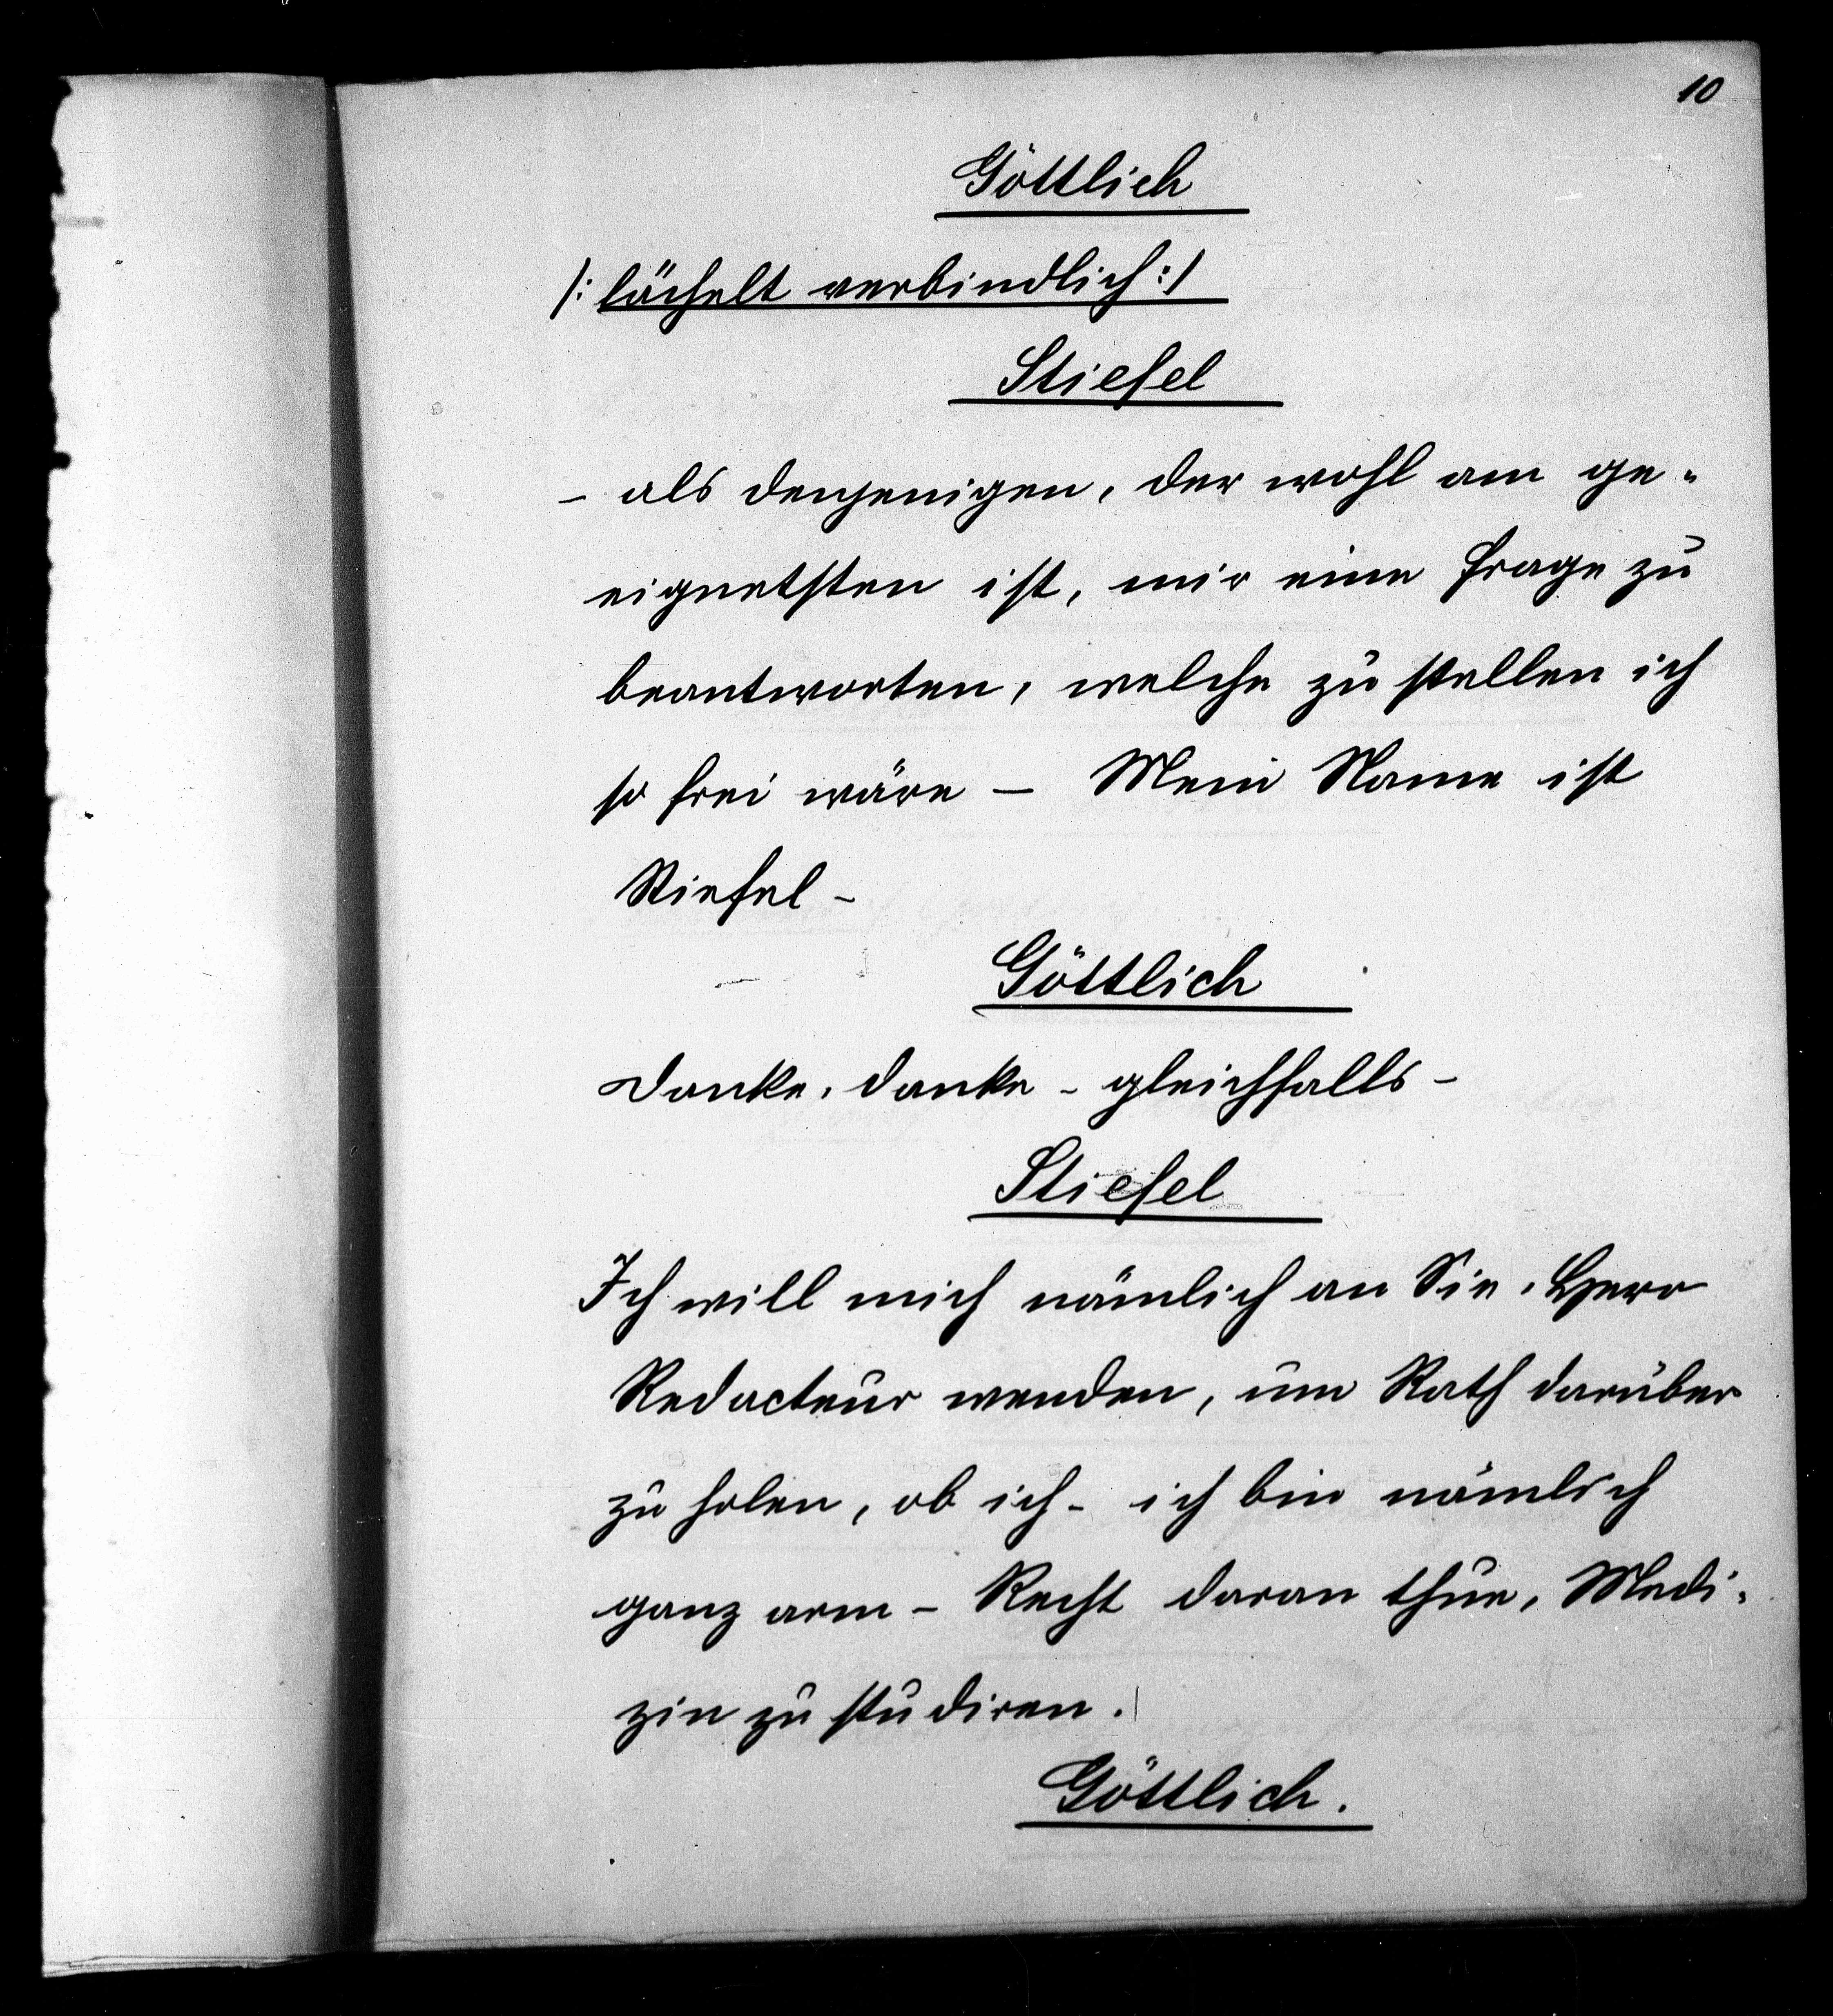 10
Göttlich
/: lächelt verbindlich :/
Stiefel
– als denjenigen, der wohl am ge-
eignetsten ist, mir eine Frage zu
beantworten, welche zu stellen ich
so frei wäre – Mein Name ist
Stiefel –
Göttlich
Danke, danke – gleichfalls –
Stiefel
Ich will mich nämlich an Sie, Herr
Redacteur wenden, um Rath darüber
zu holen, ob ich – ich bin nämlich
ganz arm – Recht daran thue, Medi-
zin zu studiren.
Göttlich.